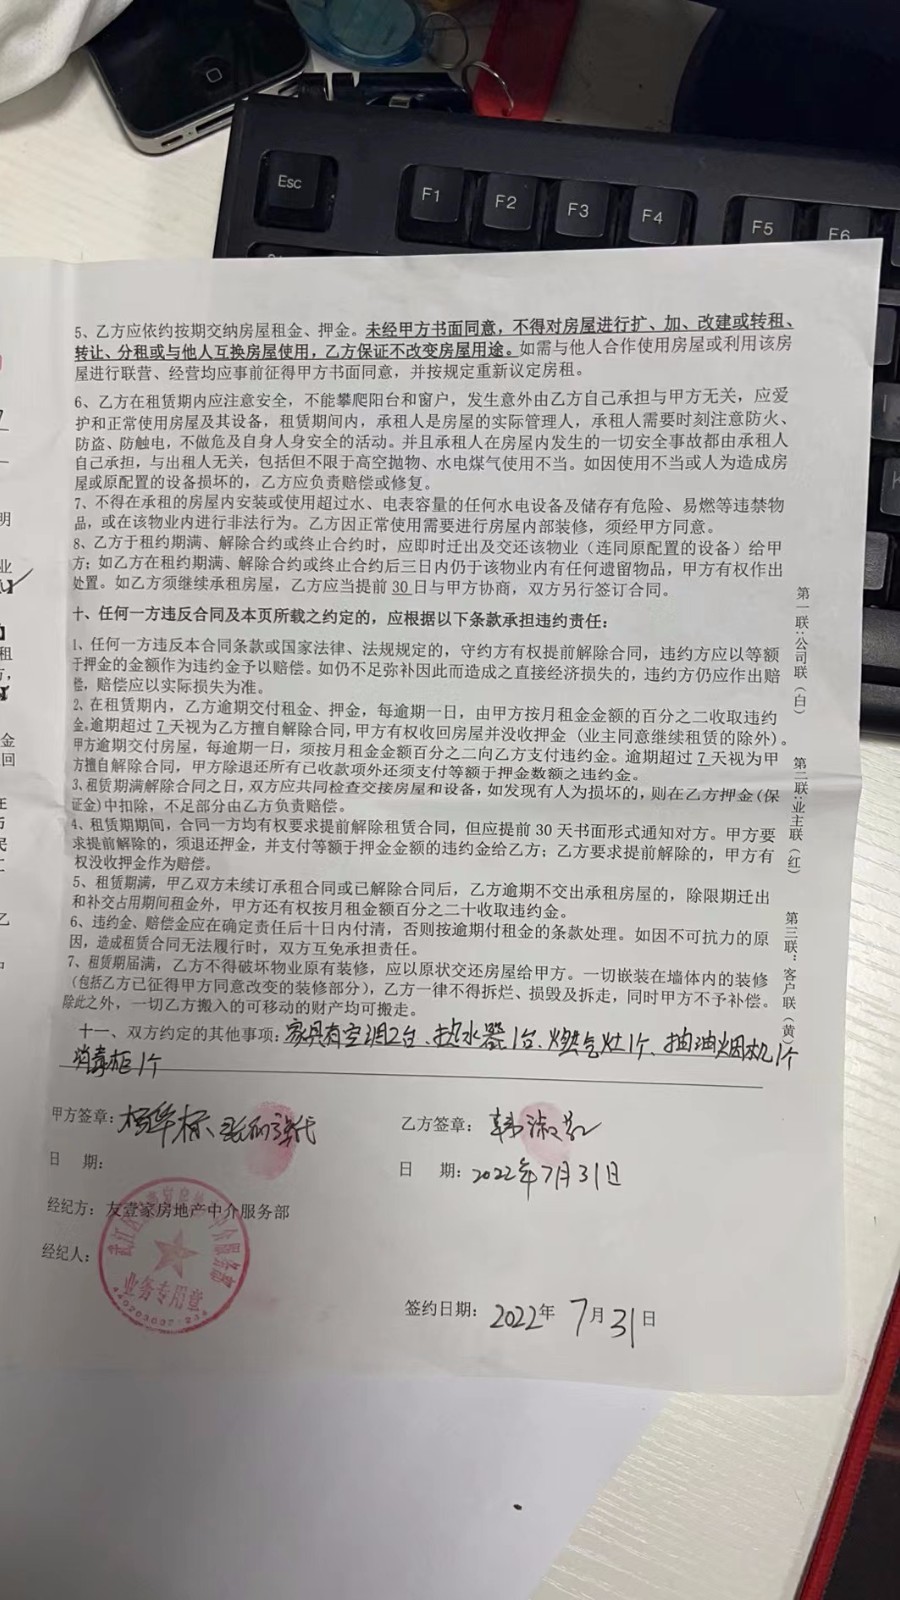 Esc
F1
F2
F3
F4
F5
F6
5、乙方应依约按期交纳房屋租金、押金。未经甲方书面同意，不得对房屋进行扩、加、改建或转租、
转让、分租或与他人互换房屋使用，乙方保证不改变房屋用途。如需与他人合作使用房屋或利用该房
屋进行联营、经营均应事前征得甲方书面同意，并按规定重新议定房租。
6、乙方在租赁期内应注意安全，不能攀爬阳台和窗户，发生意外由乙方自己承担与甲方无关，应爱
护和正常使用房屋及其设备，租赁期间内，承租人是房屋的实际管理人，承租人需要时刻注意防火、
防盗、防触电，不做危及自身人身安全的活动。并且承租人在房屋内发生的一切安全事故都由承租人
自己承担，与出租人无关，包括但不限于高空抛物、水电煤气使用不当。如因使用不当或人为造成房
屋或原配置的设备损坏的，乙方应负责赔偿或修复。
7、不得在承租的房屋内安装或使用超过水、电表容量的任何水电设备及储存有危险、易燃等违禁物
品，或在该物业内进行非法行为。乙方因正常使用需要进行房屋内部装修，须经甲方同意。
8、乙方于租约期满、解除合约或终止合约时，应即时迁出及交还该物业（连同原配置的设备）给甲
方；如乙方在租约期满、解除合约或终止合约后三日内仍于该物业内有任何遗留物品，甲方有权作出
处置。如乙方须继续承租房屋，乙方应当提前30日与甲方协商，双方另行签订合同。
十、任何一方违反合同及本页所载之约定的，应根据以下条款承担违约责任：
1、任何一方违反本合同条款或国家法律、法规规定的，守约方有权提前解除合同，违约方应以等额
于押金的金额作为违约金予以赔偿。如仍不足弥补因此而造成之直接经济损失的，违约方仍应作出赔
偿，赔偿应以实际损失为准。
2、在租赁期内，乙方逾期交付租金、押金，每逾期一日，由甲方按月租金金额的百分之二收取违约
金。逾期超过7天视为乙方擅自解除合同，甲方有权收回房屋并没收押金（业主同意继续租赁的除外）。
甲方逾期交付房屋，每逾期一日，须按月租金金额百分之二向乙方支付违约金。逾期超过7天视为甲
方擅自解除合同，甲方除退还所有已收款项外还须支付等额于押金数额之违约金。
3、租赁期满解除合同之日，双方应共同检查交接房屋和设备，如发现有人为损坏的，则在乙方押金（保
证金）中扣除，不足部分由乙方负责赔偿。
4、租赁期期间，合同一方均有权要求提前解除租赁合同，但应提前30天书面形式通知对方。甲方要
求提前解除的，须退还押金，并支付等额于押金金额的违约金给乙方；乙方要求提前解除的，甲方有
权没收押金作为赔偿。
5、租赁期满，甲乙双方未续订承租合同或已解除合同后，乙方逾期不交出承租房屋的，除限期迁出
和补交占用期间租金外，甲方还有权按月租金额百分之二十收取违约金。
6、违约金、赔偿金应在确定责任后十日内付清，否则按逾期付租金的条款处理。如因不可抗力的原
因，造成租赁合同无法履行时，双方互免承担责任。
7、租赁期届满，乙方不得破坏物业原有装修，应以原状交还房屋给甲方。一切嵌装在墙体内的装修
（包括乙方已征得甲方同意改变的装修部分），乙方一律不得拆烂、损毁及拆走，同时甲方不予补偿。
除此之外，一切乙方搬入的可移动的财产均可搬走。
十一、双方约定的其他事项：家具有空调2台、热水器1台、燃气灶1个、抽油烟机1个
消毒柜1个
甲方签章：
乙方签章：韩淑
日 期：
日 期：2022年7月31日
经纪方：友壹家房地产中介服务部
经纪人：
签约日期：2022年7月31日
第一联：公司联（白）
第二联：业主联（红）
第三联：客户联（黄）